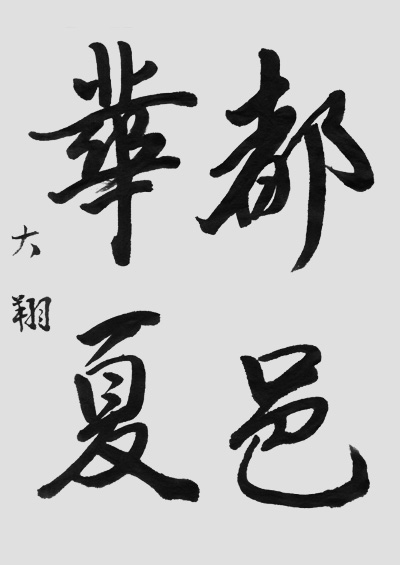 都邑
華夏
大翔